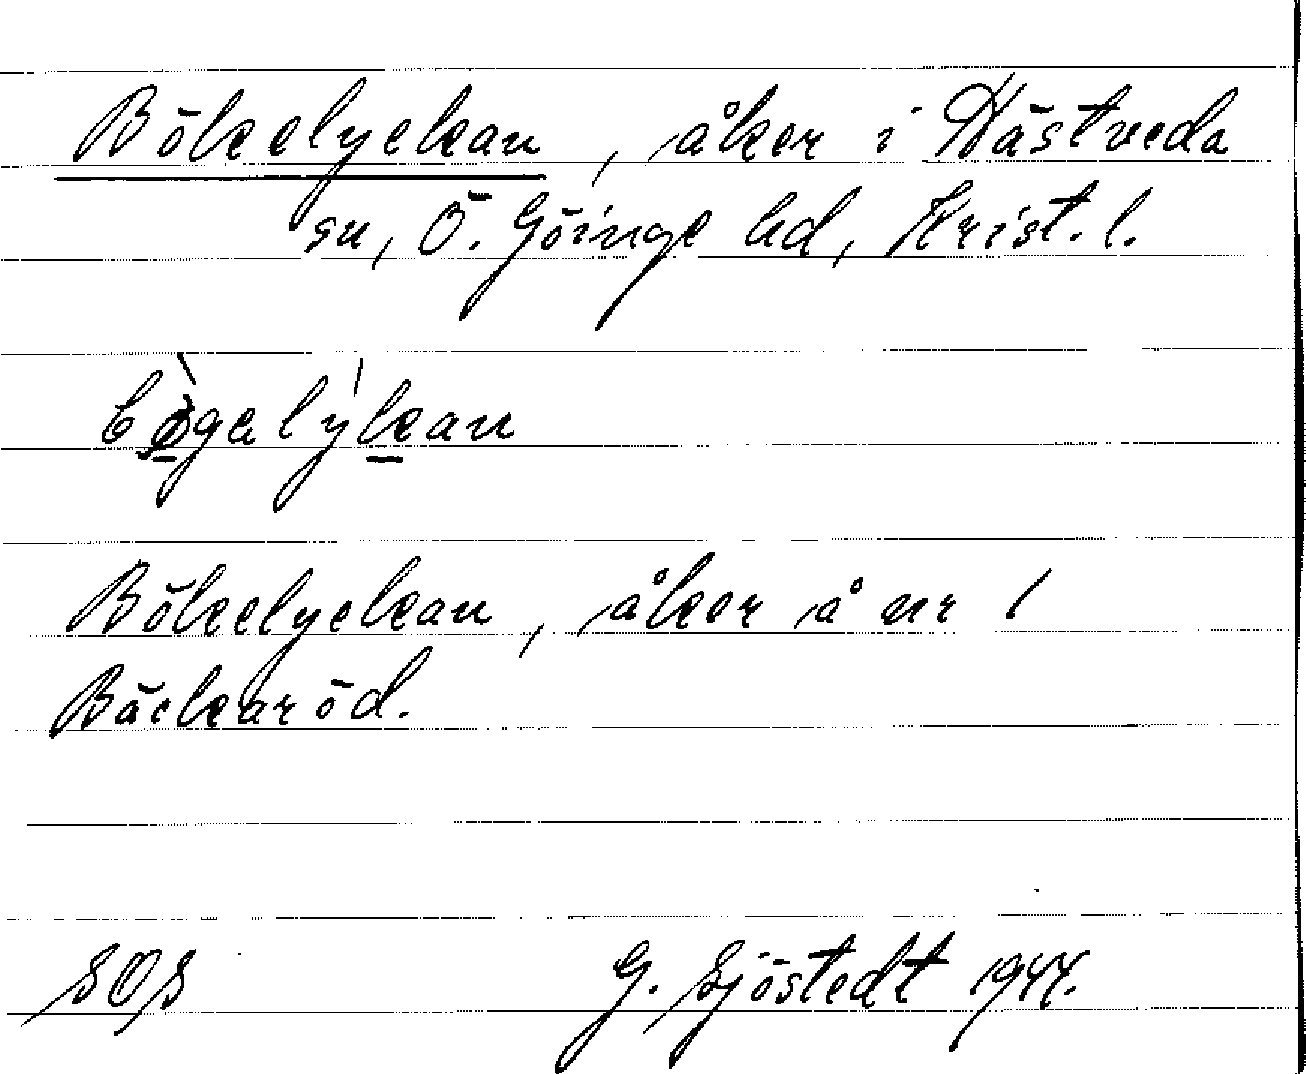 Bökelyckan, åker i Hästveda
sn, Ö. Göinge hd, Krist. l.
bø̀galy̍kan
Bökelyckan, åker å nr 1
Bäckaröd.
SOS
G. Sjöstedt 1944.